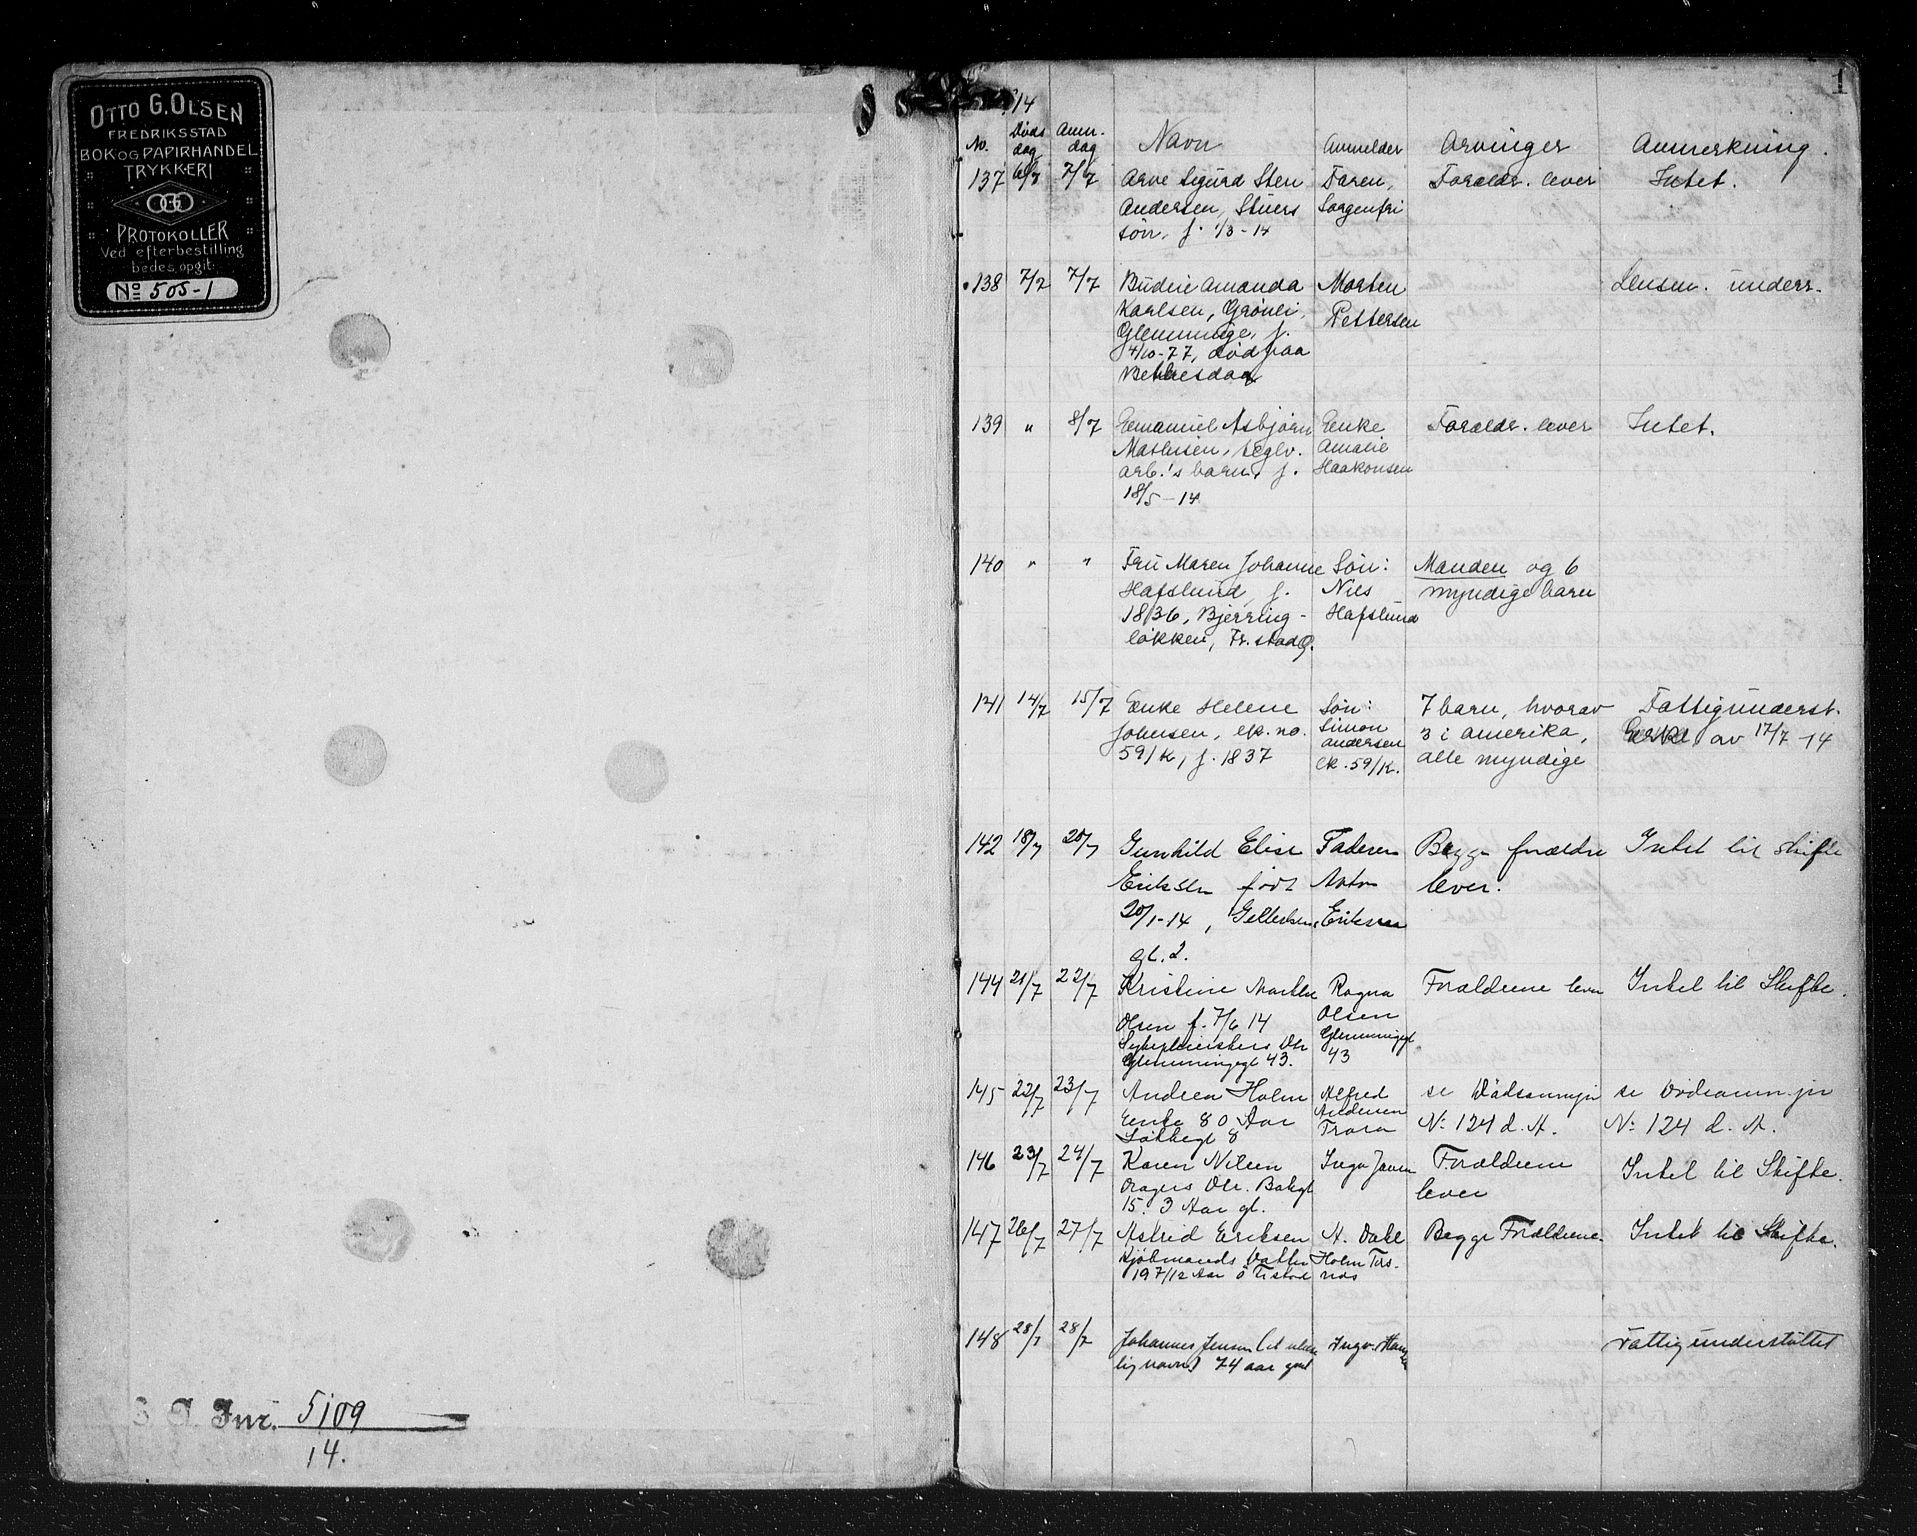 OTTO G. OLSEN
FREDRIKSSTAD
BOK OG PAPIRHANDEL
TRYKKERI
OGO
PROTOKOLLER
Ved efterbestilling
bedes opgit:
No 505-1
J. Inr. 5109
14.
1
14
No. Døds dag Anm. dag Navn Anmelder Arvinger Anmerkning.
137 6/7 7/7 Arve Sigurd Sten Faren, Foreldr. lever Intet.
Andersen, Stuers Sorgenfri
søn, f. 1/3-14
138 7/2 7/7 Budeie Amanda Morten Lensm. unders.
Karlsen, Grønli, Pettersen
Glemminge, f.
4/10-77, død paa
Bethesda
139 " 8/7 Emanuel Asbjørn Enke Forældr. lever Intet.
Mathisen, teglv. Amalie
arb.'s barn, f. Haakonsen
18/5-14
140 " " Fru Maren Johanne Søn: Manden og 6
Hafslund, f. Nils myndige barn
1836, Bjerring- Hafslund
løkken, Fr.stad
141 14/7 15/7 Enke Helene Søn: 7 barn, hvorav Fattigunderst.
Johnsen, ek. no. Simon Andersen 3 i Amerika, av 17/7-14
59/K, f. 1837 ek. 59/K. alle myndige
142 18/7 20/7 Gunhild Elise Faderen Begge forældre Intet til skifte
Eriksen født Anton lever.
20/1-14, Eriksen
gt. 2.
144 21/7 22/7 Kristine Marthe Ragna Forældrene lever Intet til Skifte.
Olsen f. 7/6 14 Olsen
Dtr Glemmingegt
Glemmingegt 43. 43
145 22/7 23/7 Andrea Holm Alfred se Dødsanm. se Dødsanm.
Enke 80 Aar Andersen No 124 d. A. No 124 d. A.
8 Trara
146 23/7 24/7 Karen Nilsen Inga Forældrene Intet til Skifte.
Dragers Dtr. lever
15. 3 Aar gl.
147 26/7 27/7 Astrid Eriksen A. Dahl Begge Forældrene. Intet til Skifte.
Kjøbmands Datter Holm
19 7/12 Aar
148 28/7 28/7 Johannes Jensen Ingv. Fattigunderstøttet
lig navn) 74 aar gml